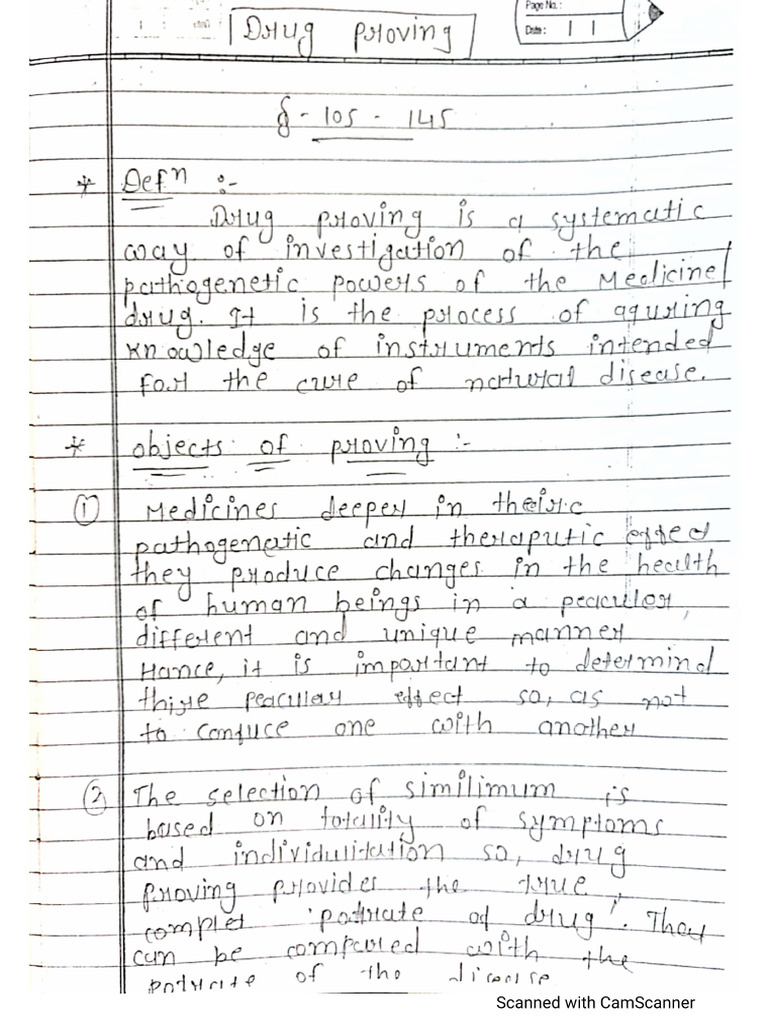 Page No.:
Drug proving
Date: | |
§ - 105 - 145
* Defn :-
Drug proving is a systematic
way of investigation of the
pathogenetic powers of the Medicine/
drug. It is the process of aquring
knowledge of instruments intended
for the cure of natural disease.
* objects of proving :-
① Medicines deeper in theiric
pathogenetic and theraputic effect
they produce changes in the health
of human beings in a peaculor,
different and unique manner
Hance, it is important to determind
thire peacular effect so, as not
to confuce one with another
② The selection of similimum is
based on totality of symptoms
and individulitation so, drug
proving provides the true,
complet 'potrate of drug'. They
can be compared with the
potrate of the disease
Scanned with CamScanner